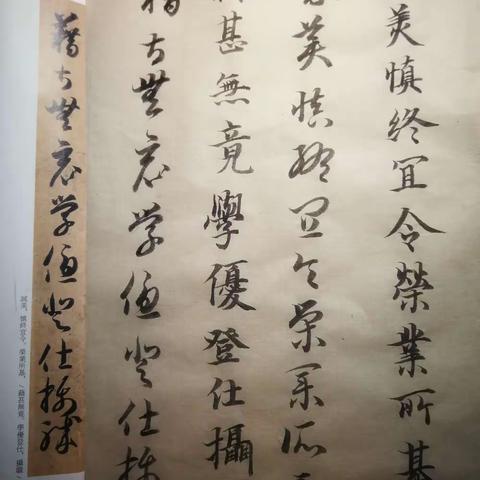 美慎終宜令榮業所基
美慎終宜令榮業所
甚無竟學優登仕攝
籍甚無竟學優登仕攝
籍甚無竟學優登仕攝職
美，慎終宜令。榮業所基，籍甚無竟。學優登仕，攝職